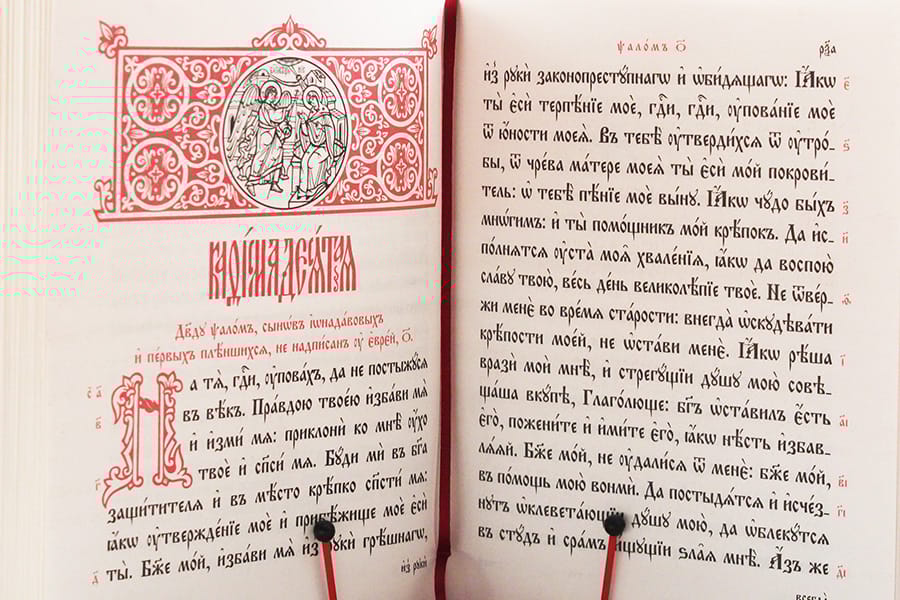 Каѳі́сма десѧ́таѧ
Дв҃ду ѱало́мъ, сынѡ́въ і҆ѡнада́вовыхъ
и҆ пе́рвыхъ плѣ́ншихсѧ, не надпи́санъ ᲂу҆ є҆вре́й, ѻ҃.
На тѧ̀, гдⷭ҇и, ᲂу҆пова́хъ, да не постыжꙋ́сѧ
въ вѣ́къ. Пра́вдою твое́ю и҆зба́ви мѧ̀
и҆ и҆зми́ мѧ: приклонѝ ко мнѣ̀ ᲂу҆́хо
твоѐ и҆ сп҃си́ мѧ. Бꙋ́ди мѝ въ бг҃а
защи́тителѧ и҆ въ мѣ́сто крѣ́пко сп҃сти́ мѧ:
ꙗ҆́кѡ ᲂу҆твержде́нїе моѐ и҆ прибѣ́жище моѐ є҆сѝ
ты̀. Бж҃е мо́й, и҆зба́ви мѧ̀ и҆з̾ рꙋкѝ грѣ́шнагѡ,
и҆з̾ рꙋкѝ
Ѱало́мъ ѻ҃
и҆з̾ рꙋкѝ законопрестꙋ́пнагѡ и҆ ѡ҆би́дѧщагѡ: Ꙗ҆́кѡ
ты̀ є҆сѝ терпѣ́нїе моѐ, гдⷭ҇и, гдⷭ҇и, ᲂу҆пова́нїе моѐ
ѿ ю҆́ности моеѧ̀. Въ тебѣ̀ ᲂу҆тверди́хсѧ ѿ ᲂу҆тро́-
бы, ѿ чре́ва ма́тере моеѧ̀ ты̀ є҆сѝ мо́й покрови́-
тель: ѡ҆ тебѣ̀ пѣ́нїе моѐ вы́нꙋ. Ꙗ҆́кѡ чꙋ́до бы́хъ
мнѡ́гимъ: и҆ ты̀ помо́щникъ мо́й крѣ́покъ. Да и҆с-
по́лнѧтсѧ ᲂу҆ста̀ моѧ̑ хвале́нїѧ, ꙗ҆́кѡ да воспою̀
сла́вꙋ твою̀, ве́сь де́нь великолѣ́пїе твоѐ. Не ѿве́р-
жи менѐ во вре́мѧ ста́рости: внегда̀ ѡ҆скꙋдѣва́ти
крѣ́пости мое́й, не ѡ҆ста́ви менѐ. Ꙗ҆́кѡ рѣ́ша
вразѝ мои̑ мнѣ̀, и҆ стрегꙋ́щїи дꙋ́шꙋ мою̀ совѣ-
ща́ша вкꙋ́пѣ, Глаго́люще: бг҃ъ ѡ҆ста́вилъ є҆́сть
є҆го̀, пожени́те и҆ и҆ми́те є҆го̀, ꙗ҆́кѡ нѣ́сть и҆збав-
лѧ́ѧй. Бж҃е мо́й, не ᲂу҆дали́сѧ ѿ менє̀: бж҃е мо́й,
въ по́мощь мою̀ вонмѝ. Да постыдѧ́тсѧ и҆ и҆сче́з-
нꙋтъ ѡ҆клевета́ющїи дꙋ́шꙋ мою̀, да ѡ҆блекꙋ́тсѧ
въ стꙋ́дъ и҆ сра́мъ и҆́щꙋщїи ѕла̑ѧ мнѣ̀. А҆́зъ же